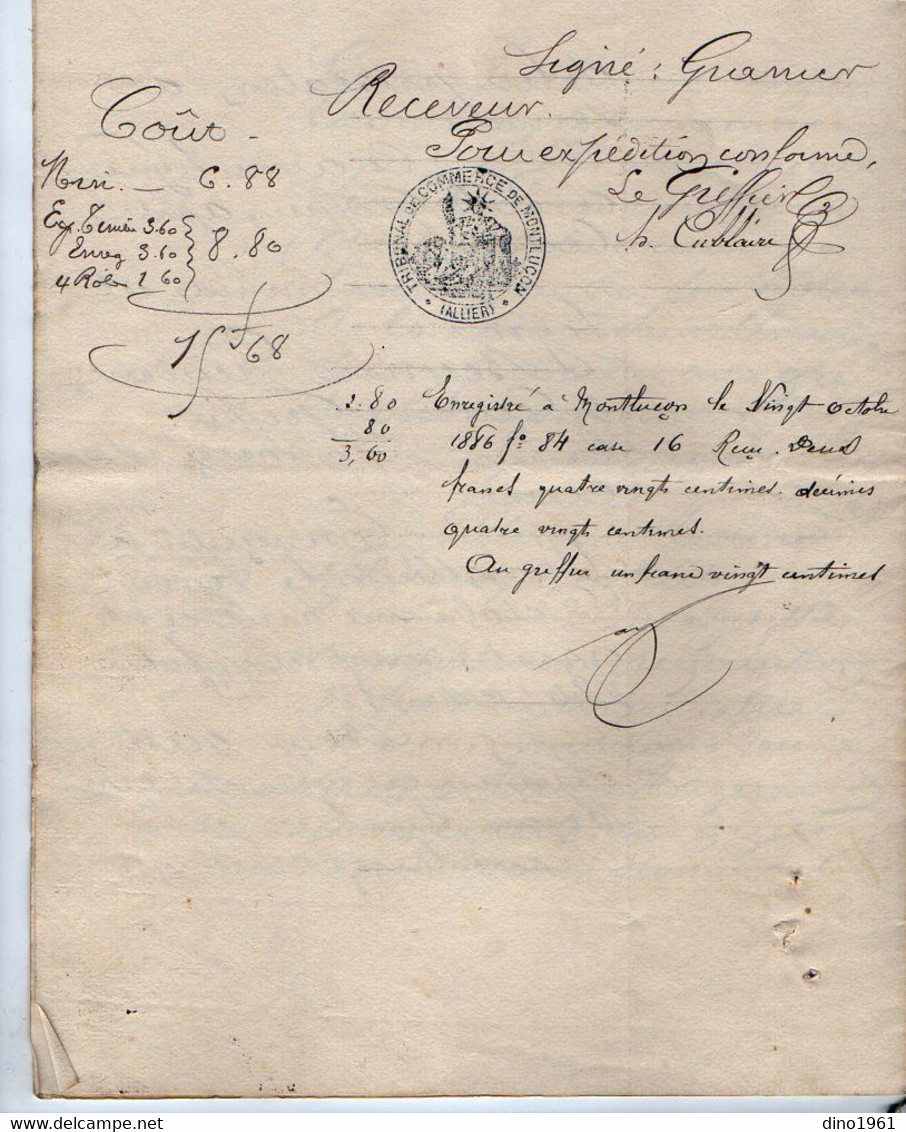 Signé : Granier
Receveur.
Pour expédition conforme,
Le Greffier
Coût -
Min. — 6.88
Exp. Timbre 3.60
Enreg 3.60
4 Rôles 1 60
8.80
15f 68
TRIBUNAL DE COMMERCE DE MONTLUÇON
(ALLIER)
2.80
80
3,60
Enregistré à Montluçon le Vingt octobre
1886 f° 84 case 16 Reçu Deux
francs quatre vingts centimes. décimes
quatre vingts centimes.
Au greffier un franc vingt centimes
dino1961